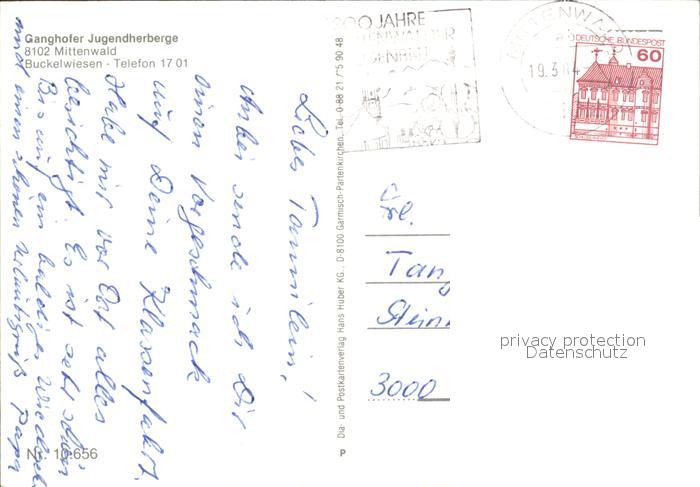 Ganghofer Jugendherberge
8102 Mittenwald
Buckelwiesen - Telefon 17 01
Liebes Tannilein!
Anbei sende ich Dir
einen Vorgeschmack
auf Deine Klassenfahrt.
Habe mir vor Ort alles
besichtigt. Es ist sehr schön
Bis auf ein baldiges Wiederseh
und einen schönen Urlaubsgruß Papa
Nr. 10.656
Dia- und Postkartenverlag Hans Huber KG., D-8100 Garmisch-Partenkirchen, Tel. 0 88 21 / 5 90 48
P
JAHRE
MITTENWALD
19.3
DEUTSCHE BUNDESPOST
60
Frl.
Tan
Stein
3000
privacy protection
Datenschutz